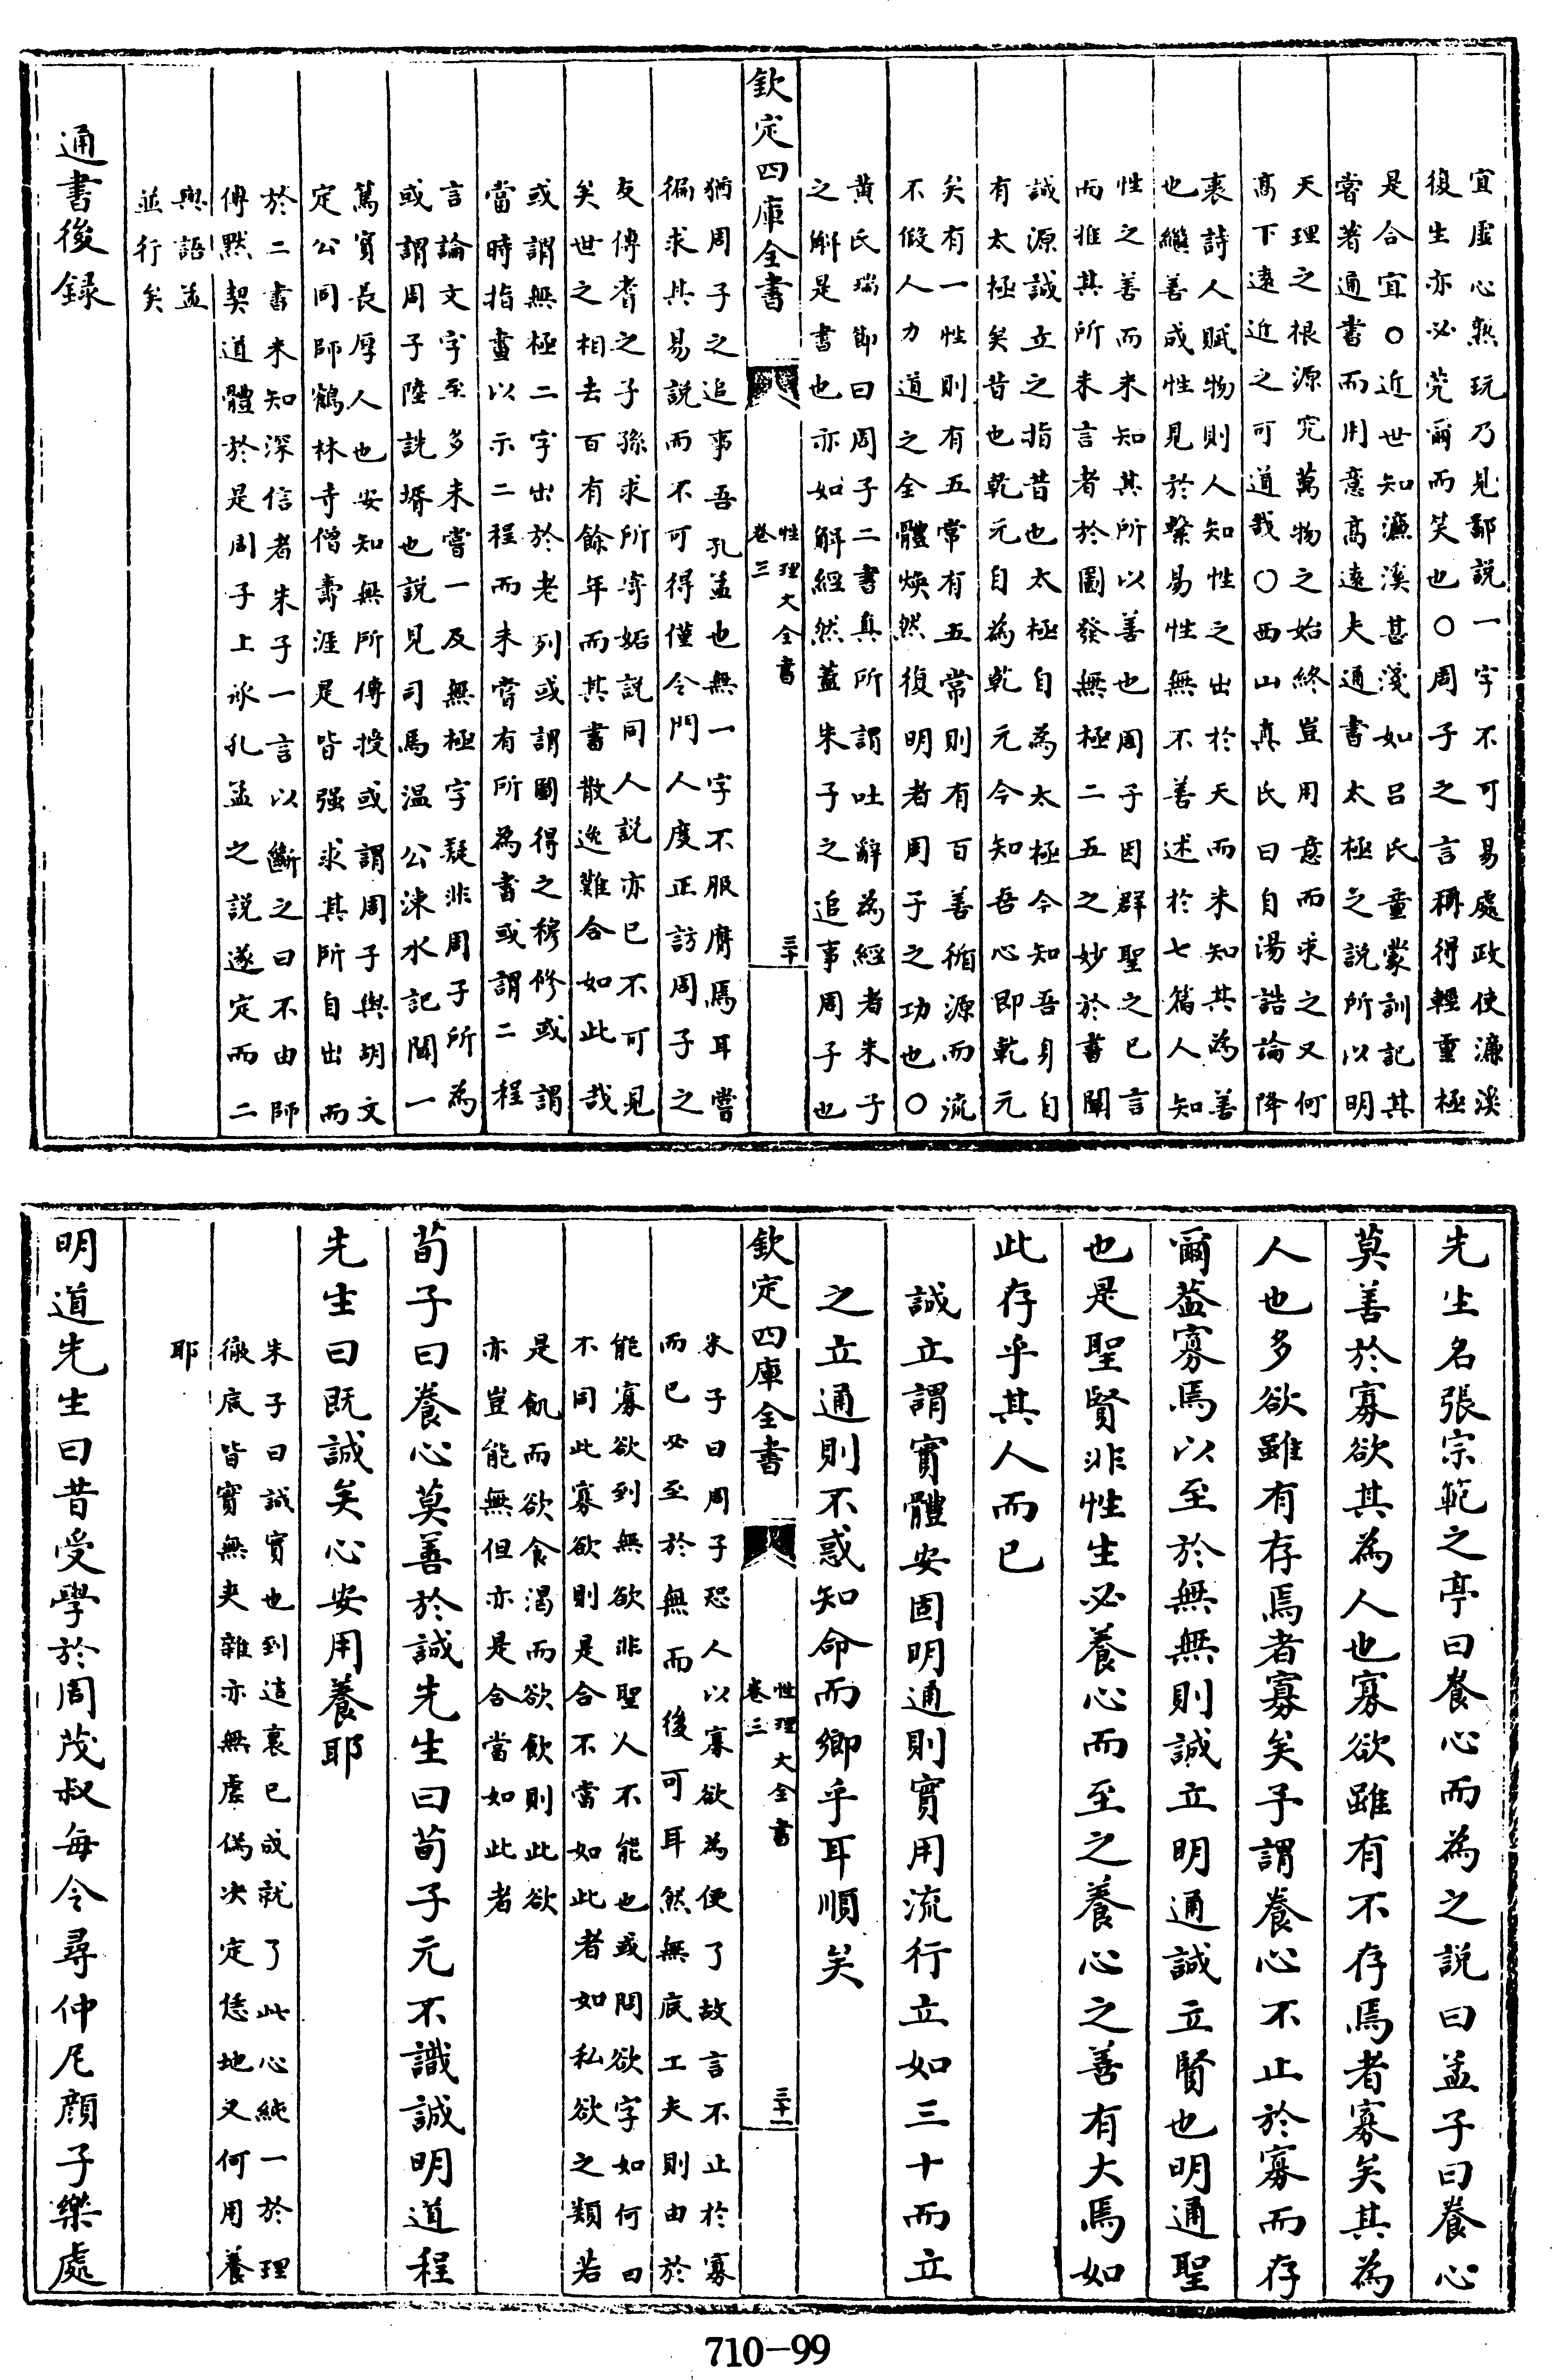 宜虛心熟玩乃見鄙說一字不可易處政使濓溪
復生亦必莞爾而笑也○周子之言稱得輕重極
是合宜○近世知濓溪甚淺如吕氏童蒙訓記其
嘗著通書而用意高遠夫通書太極之說所以明
天理之根源究萬物之始終豈用意而求之又何
髙下遠近之可道哉○西山真氏曰自湯誥論降
衷詩人賦物則人知性之出於天而未知其為善
也繼善成性見於繋易性無不善述於七篇人知
性之善而未知其所以善也周子因群聖之已言
而推其所未言者於圖發無極二五之妙於書闡
誠源誠立之指昔也太極自為太極今知吾身自
有太極矣昔也乾元自為乾元今知吾心即乾元
矣有一性則有五常有五常則有百善循源而流
不假人力道之全體煥然復明者周子之功也○
黄氏瑞節曰周子二書真所謂吐辭為經者朱子
之解是書也亦如解經然蓋朱子之追事周子也
欽定四庫全書
性理大全書
卷三
三十
猶周子之追事吾孔孟也無一字不服膺焉耳嘗
徧求其易說而不可得僅令門人度正訪周子之
友傅耆之子孫求所寄姤說同人說亦已不可見
矣世之相去百有餘年而其書散逸難合如此哉
或謂無極二字出於老列或謂圖得之穆修或謂
當時指畫以示二程而未嘗有所為書或謂二程
言論文字至多未嘗一及無極字疑非周子所為
或謂周子陸詵壻也說見司馬温公涑水記聞一
篤實長厚人也安知無所傳授或謂周子與胡文
定公同師鶴林寺僧壽涯是皆强求其所自出而
於二書未知深信者朱子一言以斷之曰不由師
傳黙契道體於是周子上承孔孟之說遂定而二
與語孟
並行矣
通書後録
先生名張宗範之亭曰養心而為之說曰孟子曰養心
莫善於寡欲其為人也寡欲雖有不存焉者寡矣其為
人也多欲雖有存焉者寡矣予謂養心不止於寡而存
爾蓋寡焉以至於無無則誠立明通誠立賢也明通聖
也是聖賢非性生必養心而至之養心之善有大焉如
此存乎其人而已
誠立謂實體安固明通則實用流行立如三十而立
之立通則不惑知命而鄉乎耳順矣
欽定四庫全書
性理大全書
卷三
三十一
朱子曰周子恐人以寡欲為便了故言不止於寡
而已必至於無而後可耳然無底工夫則由於
能寡欲到無欲非聖人不能也或問欲字如何曰
不同此寡欲則是合不當如此者如私欲之類若
是飢而欲食渴而欲飲則此欲
亦豈能無但亦是合當如此者
荀子曰養心莫善於誠先生曰荀子元不識誠明道程
先生曰既誠矣心安用養耶
朱子曰誠實也到這裏已成就了此心純一於理
徹底皆實無夹雜亦無虚偽决定恁地又何用養
耶
明道先生曰昔受學於周茂叔每令尋仲尼顔子樂處
710-99